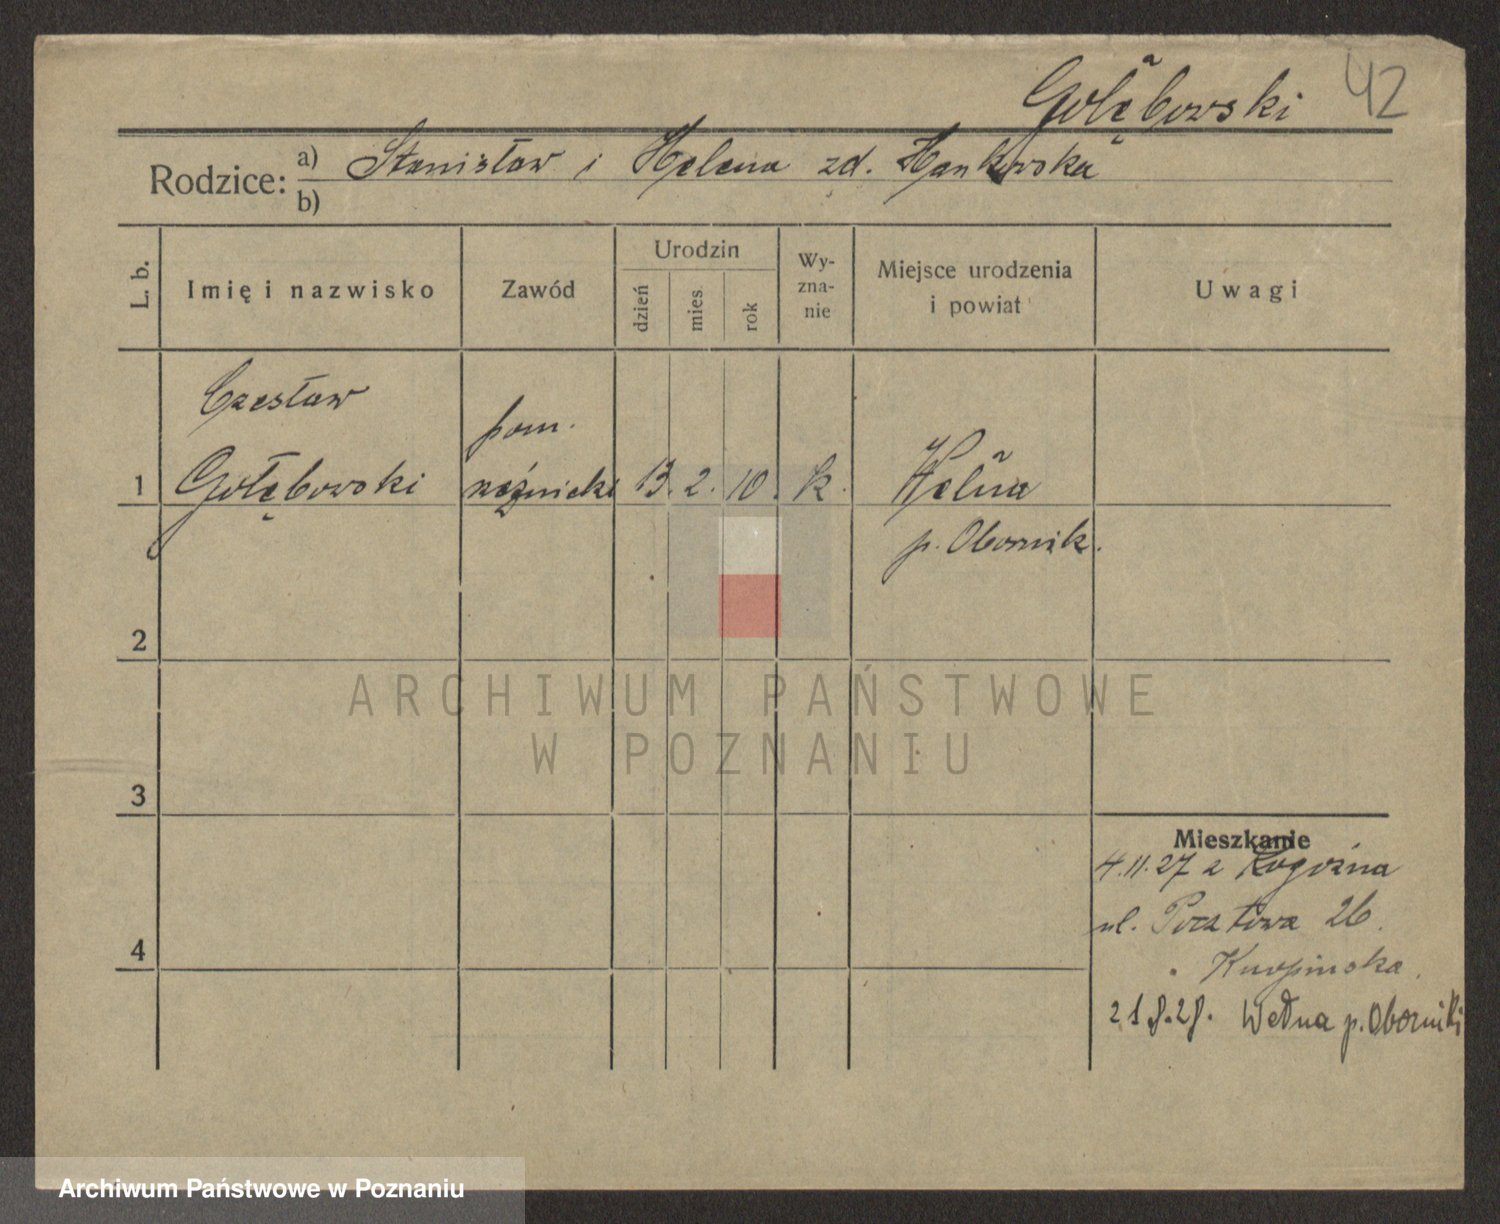 Gołębowski 42
Rodzice: a) Stanisław i Helena zd. Hankowska
b)
L. b. Imię i nazwisko Zawód Urodzin dzień mies. rok Wyznanie Miejsce urodzenia i powiat Uwagi
Czesław
pom.
1 Gołębowski rzeźnicki 13. 2. 10. k. Wełna
p. Obornik.
2
ARCHIWUM PAŃSTWOWE
W POZNANIU
3
Mieszkanie
4.11.27 z Rogoźna
ul. Pocztowa 26.
4
21.8.28. Wełna p. Oborniki
Archiwum Państwowe w Poznaniu